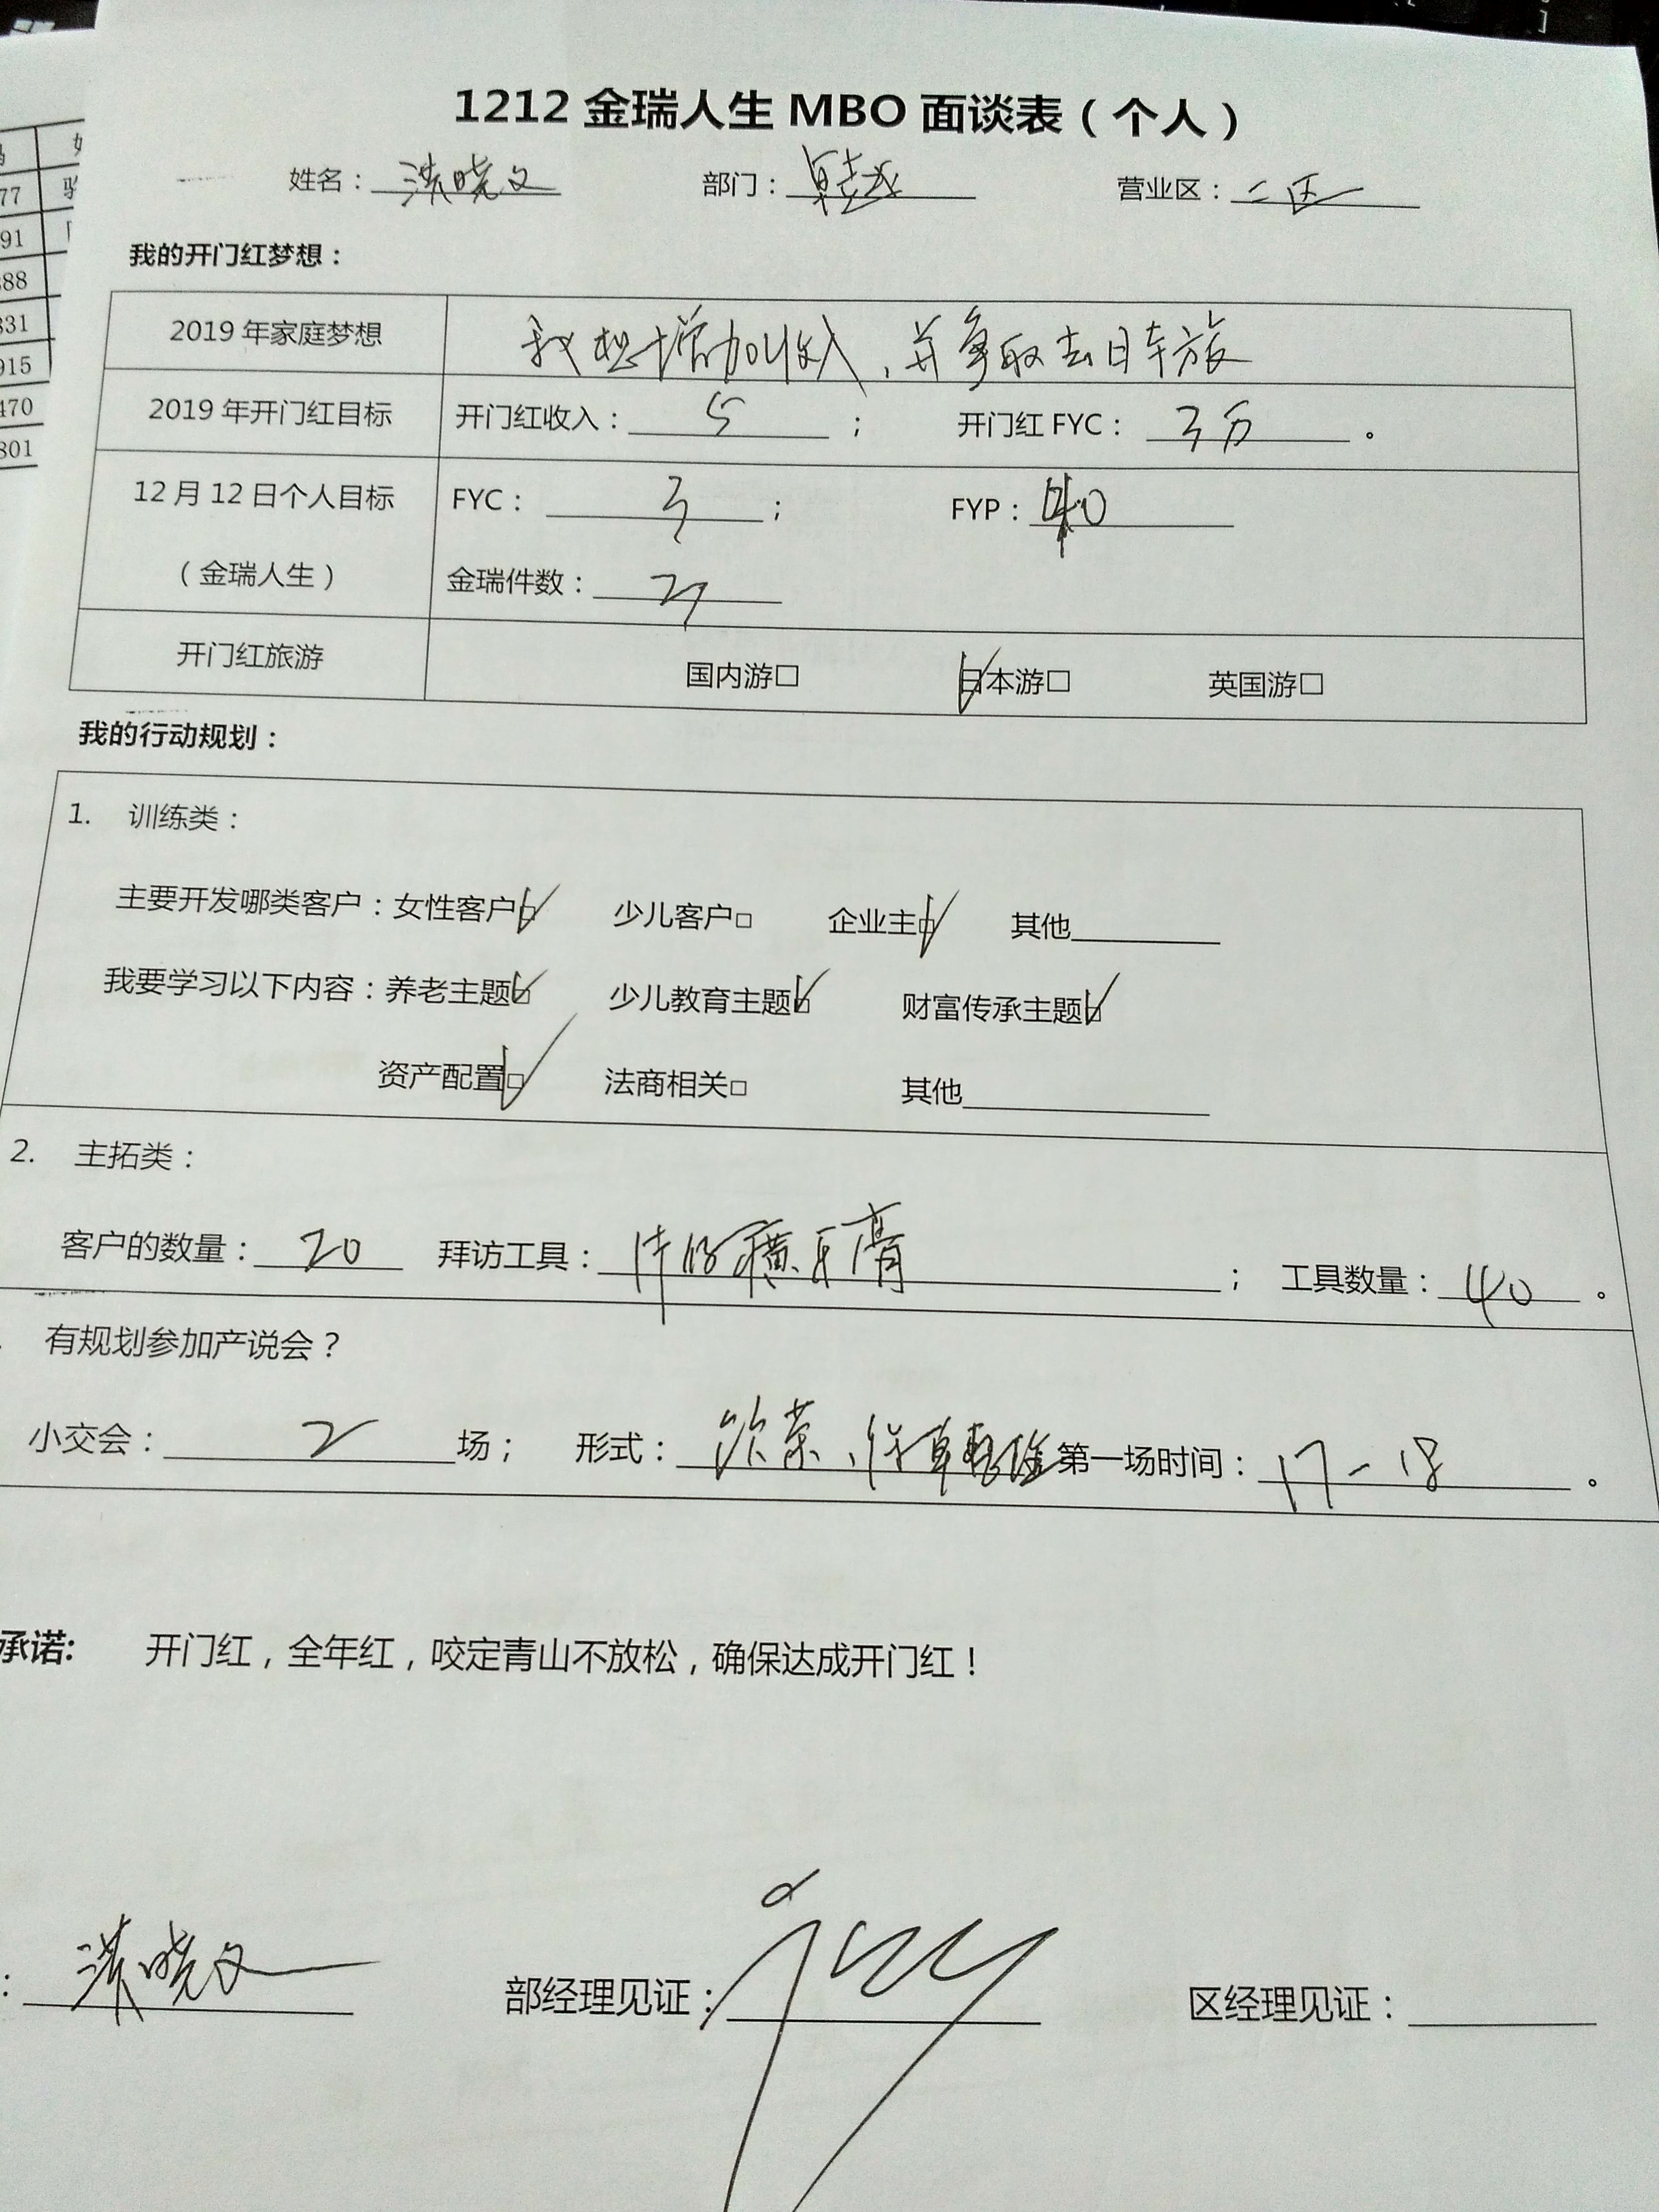 1212 金瑞人生 MBO 面谈表（个人）
姓名： 洪晓文 部门： 卓越 营业区： 二区
我的开门红梦想：
2019 年家庭梦想 我想增加收入，并争取去日本旅
2019 年开门红目标 开门红收入： 5 ； 开门红 FYC： 3万 。
12 月 12 日个人目标 FYC： 3 ； FYP： 40
（金瑞人生） 金瑞件数：
开门红旅游 国内游□ 日本游□ 英国游□
我的行动规划：
1. 训练类：
主要开发哪类客户：女性客户□ 少儿客户□ 企业主□ 其他
我要学习以下内容：养老主题□ 少儿教育主题□ 财富传承主题□
资产配置□ 法商相关□ 其他
2. 主拓类：
客户的数量： 20 拜访工具： 牙膏 ； 工具数量： 40 。
有规划参加产说会？
小交会： 2 场； 形式： 第一场时间： 17-18 。
承诺: 开门红，全年红，咬定青山不放松，确保达成开门红！
： 洪晓文 部经理见证： 区经理见证：
77
91
88
331
915
470
801